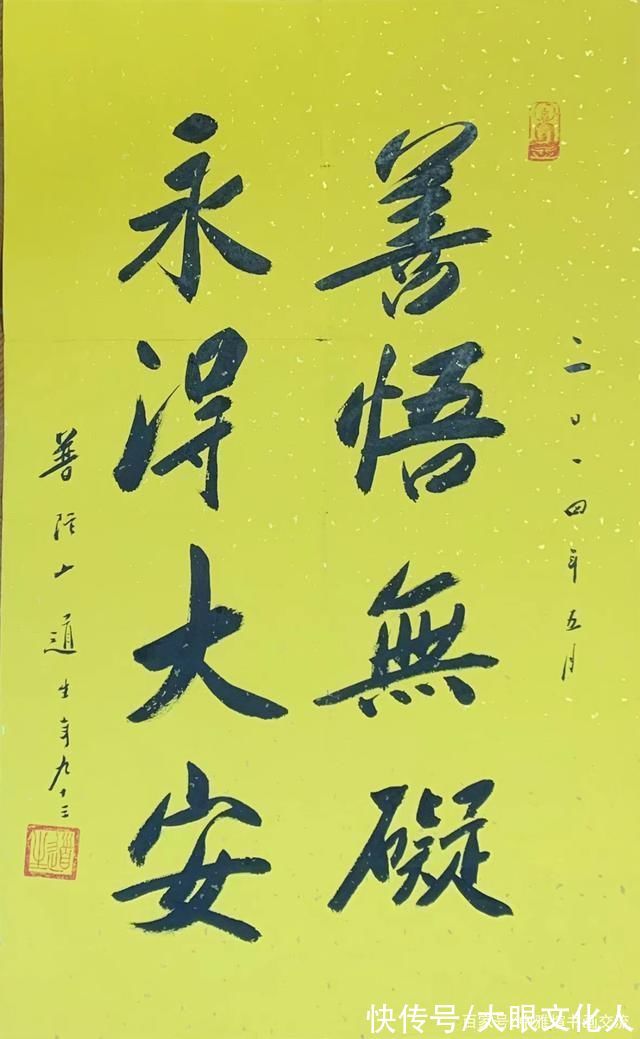 二〇一四年五月
善悟無礙
永得大安
普陀山道生年九十三
道生
快传号/大眼文化人